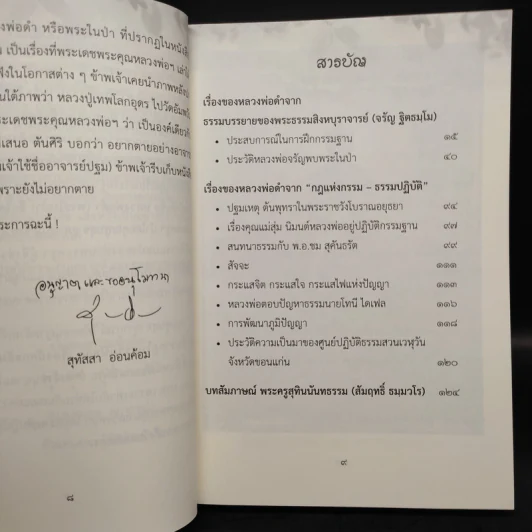 งพ่อดำ หรือพระในป่า ที่ปรากฏในหนังสือ
เป็นเรื่องที่พระเดชพระคุณหลวงพ่อฯ
ฟังในโอกาสต่าง ๆ ข้าพเจ้าเคยนำภาพ
นใต้ภาพว่า หลวงปู่เทพโลกอุดร ไปวัด
ระเดชพระคุณหลวงพ่อฯ ว่า เป็นองค์เดียว
เสนอ ตันศิริ บอกว่า อยากตายอย่าง
เจ้าใช้ชื่ออาจารย์ปฐม) ข้าพเจ้ารีบเก็บหนังสือ
พราะยังไม่อยากตาย
ระการฉะนี้ !
อนุญาต และขออนุโมทนา
สุทัสสา อ่อนค้อม
๘
สารบัญ
เรื่องของหลวงพ่อดำจาก
ธรรมบรรยายของพระธรรมสิงหบุราจารย์ (จรัญ ฐิตธมฺโม)
• ประสบการณ์ในการฝึกกรรมฐาน ๑๕
• ประวัติหลวงพ่อจรัญพบพระในป่า ๔๐
เรื่องของหลวงพ่อดำจาก “กฎแห่งกรรม – ธรรมปฏิบัติ”
• ปฐมเหตุ ต้นพุทราในพระราชวังโบราณอยุธยา ๙๔
• เรื่องคุณแม่สุ่ม นิมนต์หลวงพ่ออยู่ปฏิบัติกรรมฐาน ๙๗
• สนทนาธรรมกับ พ.อ.ชม สุคันธรัต ๙๙
• สัจจะ ๑๑๑
• กระแสจิต กระแสใจ กระแสไฟแห่งปัญญา ๑๑๓
• หลวงพ่อตอบปัญหาธรรมนายโทนี่ ไดเฟล ๑๑๖
• การพัฒนาภูมิปัญญา ๑๑๘
• ประวัติความเป็นมาของศูนย์ปฏิบัติธรรมสวนเวฬุวัน
จังหวัดขอนแก่น ๑๒๐
บทสัมภาษณ์ พระครูสุทินนันทธรรม (สัมฤทธิ์ ธมฺมวโร) ๑๒๔
๙